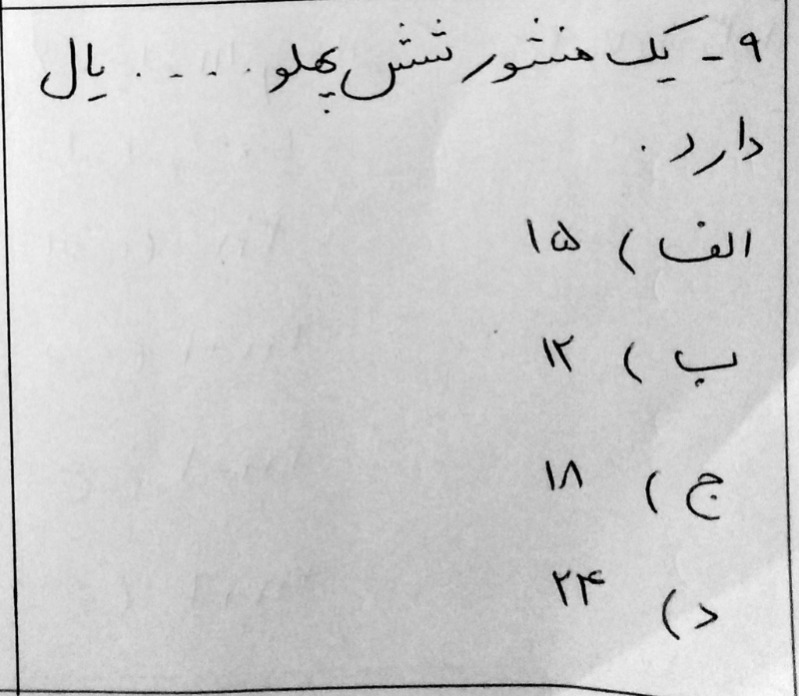 ۹ - یک منشور شش پهلو . . . . یال
دارد .
الف ) ۱۵
ب ) ۱۲
ج ) ۱۸
د ) ۲۴